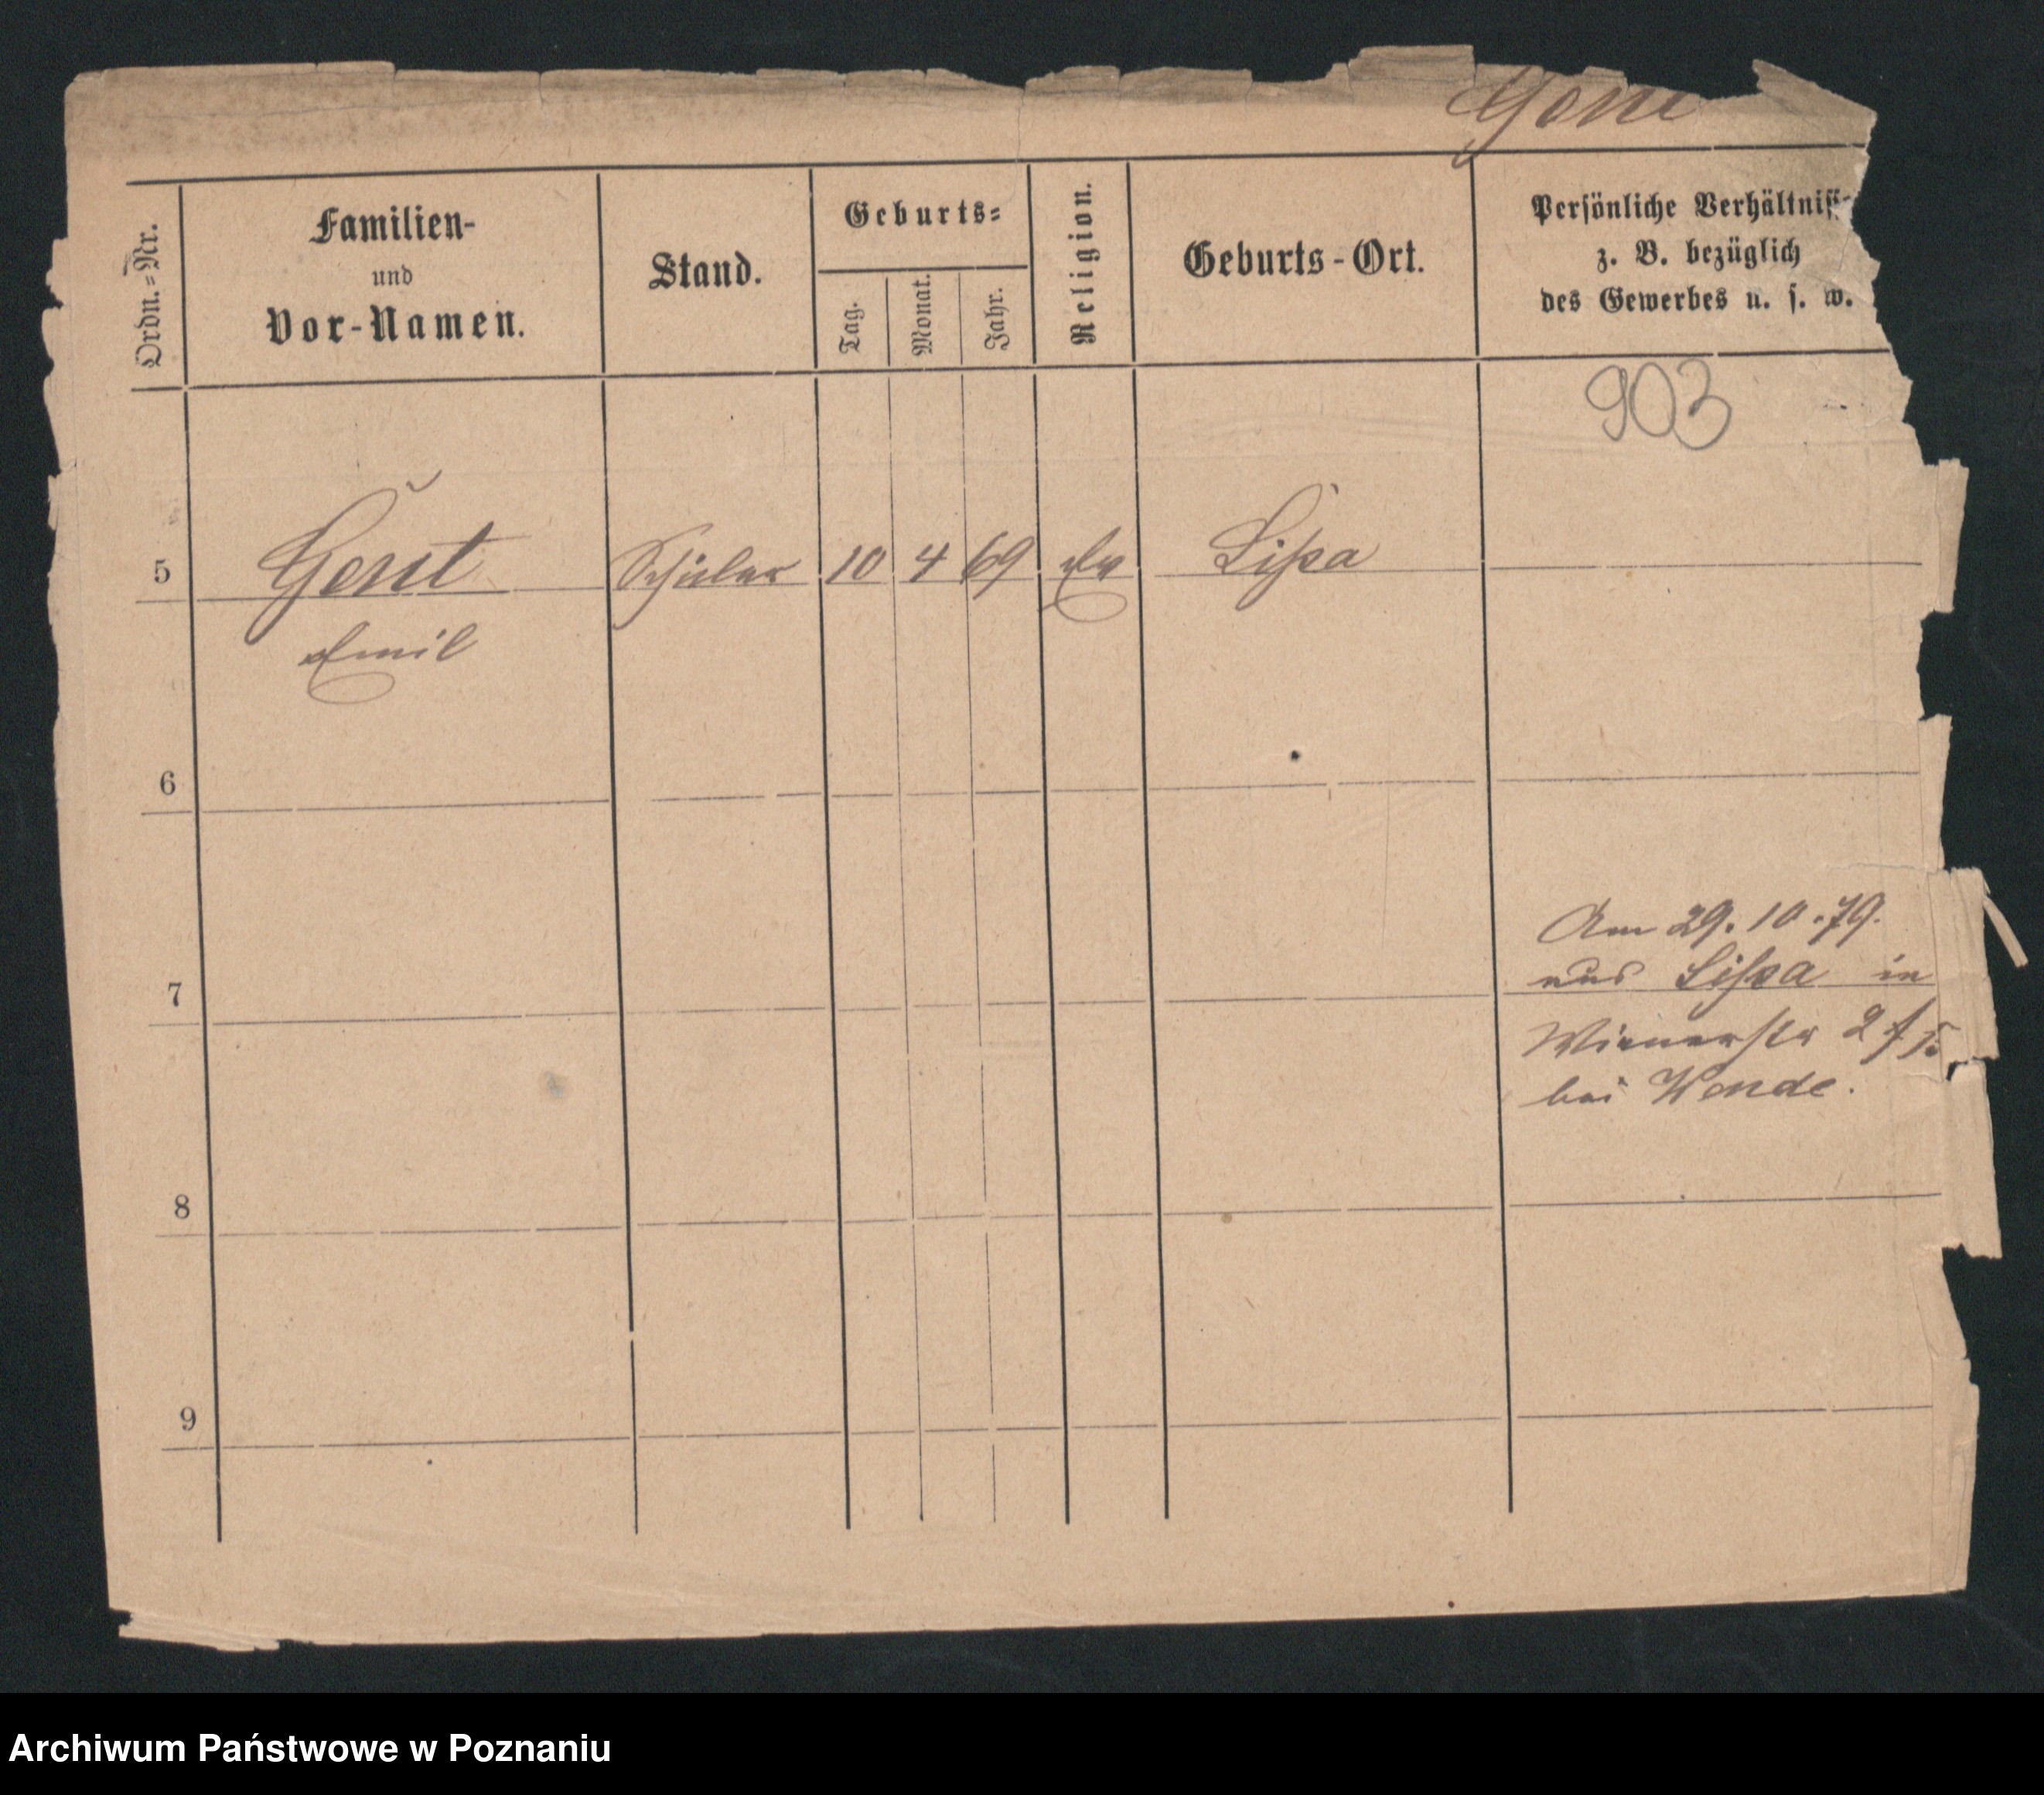 Ordn.=Nr.
Familien-
und
Vor-Namen.
Stand.
Geburts=
Tag.
Monat.
Jahr.
Religion.
Geburts-Ort.
Persönliche Verhältniss
z. B. bezüglich
des Gewerbes u. s. w.
903
5 Gent Schüler 10 4 69 Ev Lissa
Emil
6
Am 29. 10. 79.
7 aus Lissa in
Wienerstr
bei Wende.
8
9
Archiwum Państwowe w Poznaniu